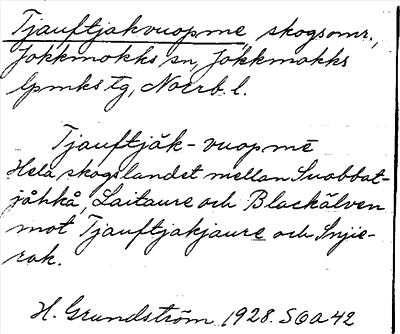 Tjauftjakvuopme skogsomr.,
Jokkmokks sn, Jokkmokks
lpmks tg, Norrb. l.
Tjauftjåk-vuopmē
Hela skogslandet mellan Suobbat-
jåhkå, Laitaure och Blackälven
mot Tjauftjakjaure och Snjie-
rak.
H. Grundström 1928. S6a42